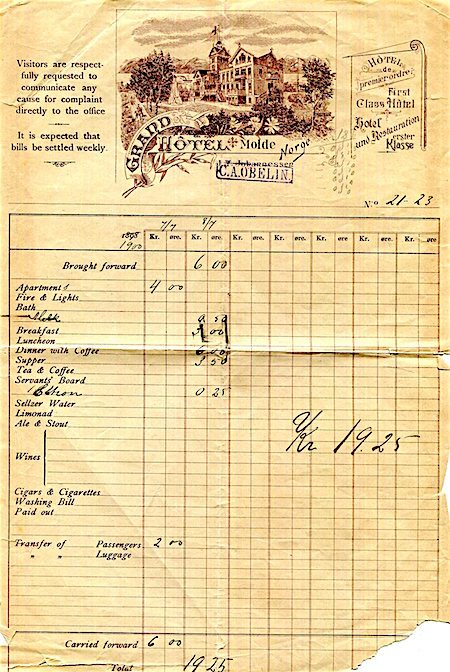 Visitors are respect-
fully requested to
communicate any
cause for complaint
directly to the office
It is expected that
bills be settled weekly.
GRAND
HÔTEL Molde
Norge
C.A.OBELIN
HÔTEL
de
premier ordre
First
Class Hôtel
Hotel
und Restauration
erster
Klasse
No 21-23
7/7 8/7
1898
1900
Kr. øre. Kr. øre. Kr. øre Kr. øre Kr. øre Kr. øre Kr. øre
Brought forward 6 00
Apartments 4 00
Fire & Lights
Bath
0 50
Breakfast 3 00
Luncheon
Dinner with Coffee 6 00
Supper 3 50
Tea & Coffee
Servants' Board
0 25
Seltzer Water
Limonad
Ale & Stout
Kr 19.25
Wines
Cigars & Cigarettes
Washing Bill
Paid out
Transfer of Passengers 2 00
" " Luggage
Carried forward 6 00
Total 19 25